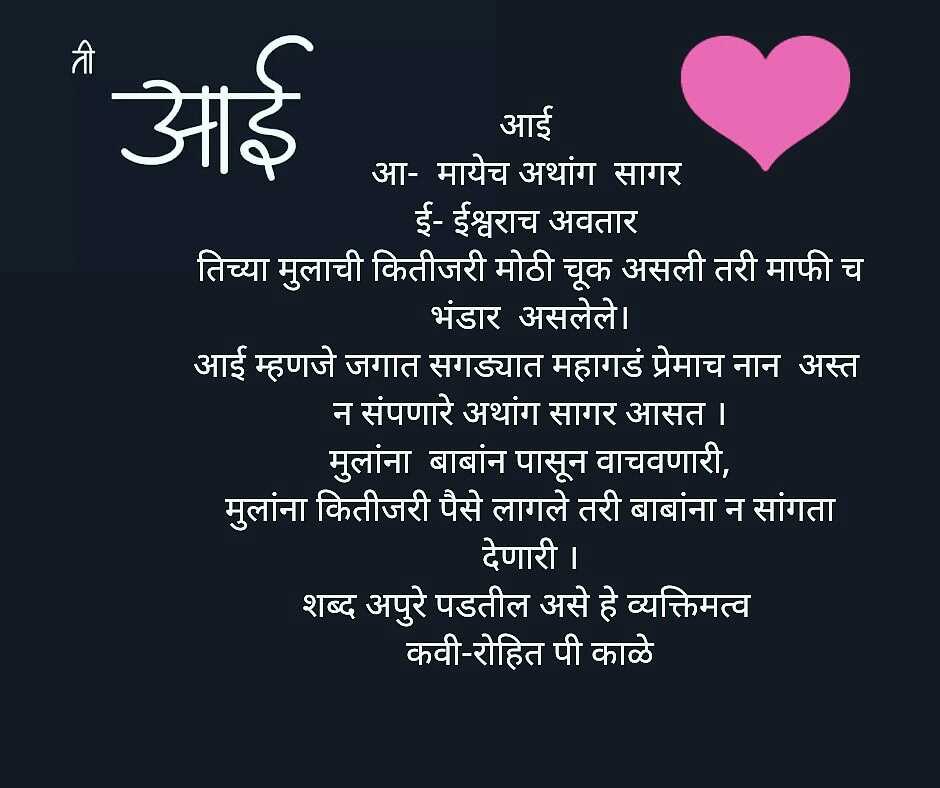 ती
आई
आई
आ- मायेच अथांग सागर
ई- ईश्वराच अवतार
तिच्या मुलाची कितीजरी मोठी चूक असली तरी माफी च
भंडार असलेले।
आई म्हणजे जगात सगड्यात महागडं प्रेमाच नान अस्त
न संपणारे अथांग सागर आसत ।
मुलांना बाबांन पासून वाचवणारी,
मुलांना कितीजरी पैसे लागले तरी बाबांना न सांगता
देणारी ।
शब्द अपुरे पडतील असे हे व्यक्तिमत्व
कवी-रोहित पी काळे